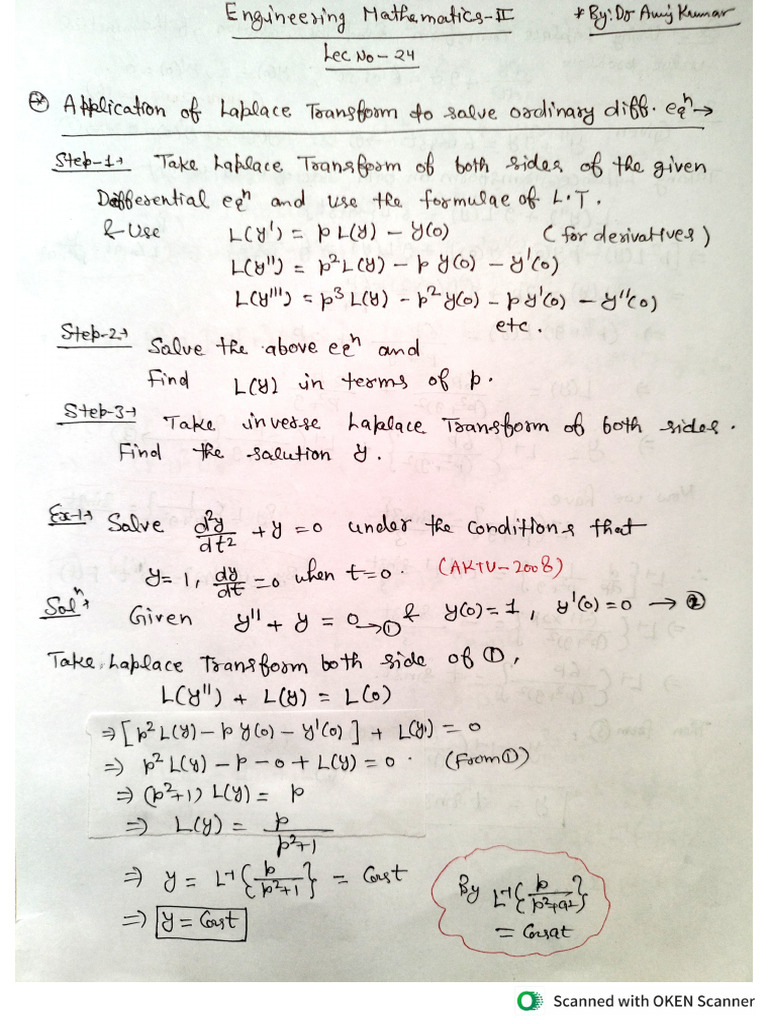 Engineering Mathematics-II * By: Dr Anuj Kumar
Lec No - 24
⊛ Application of Laplace Transform to solve ordinary diff. eqⁿ →
Step-1→ Take Laplace Transform of both sides of the given
Differential eqⁿ and use the formulae of L.T.
& Use L(y') = p L(y) - y(0) (for derivatives)
L(y'') = p² L(y) - p y(0) - y'(0)
L(y''') = p³ L(y) - p² y(0) - p y'(0) - y''(0)
etc.
Step-2→ Solve the above eqⁿ and
Find L(y) in terms of p.
Step-3→ Take inverse Laplace Transform of both sides.
Find the solution y.
Ex-1→ Solve d²y/dt² + y = 0 under the conditions that
y = 1, dy/dt = 0 when t = 0. (AKTU-2008)
Solⁿ→ Given y'' + y = 0 → ① & y(0) = 1, y'(0) = 0 → ②
Take Laplace Transform both side of ①,
L(y'') + L(y) = L(0)
⇒ [p² L(y) - p y(0) - y'(0)] + L(y) = 0
⇒ p² L(y) - p - 0 + L(y) = 0. (From ①)
⇒ (p²+1) L(y) = p
⇒ L(y) = p/(p²+1)
⇒ y = L⁻¹{p/(p²+1)} = Cost
⇒ y = Cost
By L⁻¹{p/(p²+a²)}
= Cosat
Scanned with OKEN Scanner